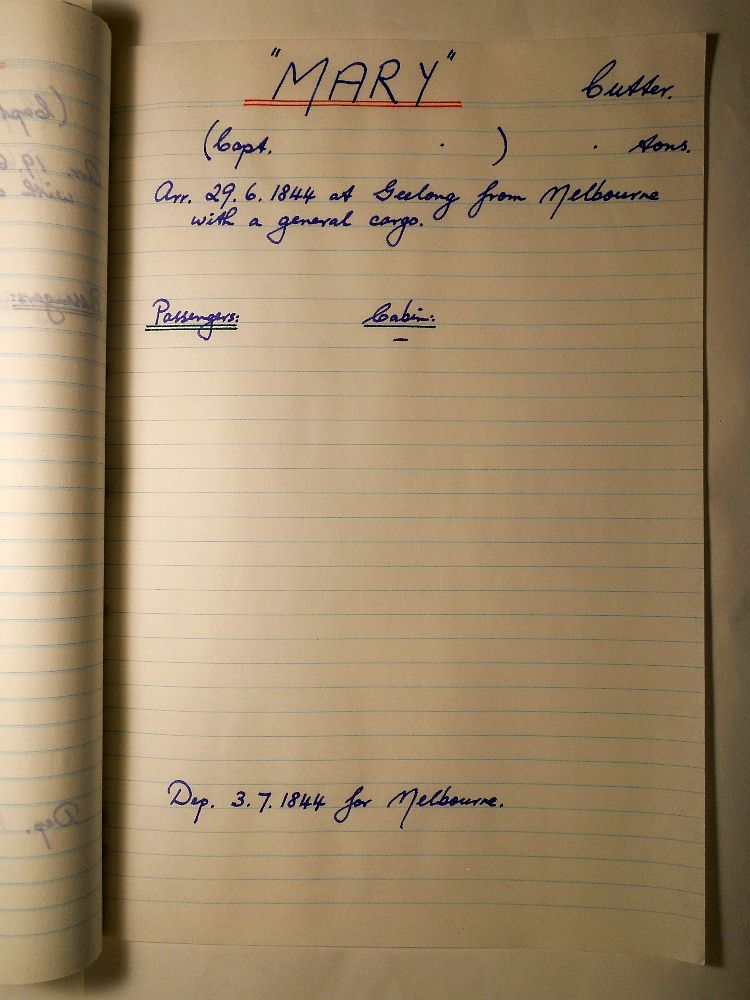 "MARY" Cutter.
(Capt. . ) . tons.
Arr. 29.6.1844 at Geelong from Melbourne
with a general cargo.
Passengers: Cabin:
—
Dep. 3.7.1844 for Melbourne.